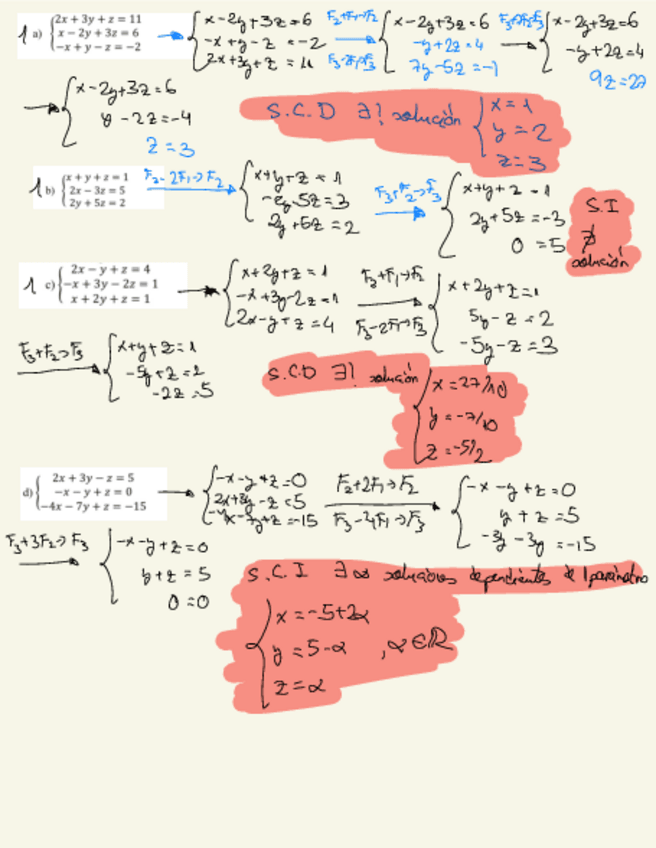 1 a) { 2x + 3y + z = 11
x − 2y + 3z = 6
−x + y − z = −2
→ { x-2y+3z=6
-x+y-z=-2
2x+3y+z=11
F2+F1→F2
F3-2F1→F3
{ x-2y+3z=6
-y+2z=4
7y-5z=-1
{ x-2y+3z=6
-y+2z=4
9z=27
→ { x-2y+3z=6
y-2z=-4
z=3
S.C.D ∃! solución { x=1
y=2
z=3
1 b) { x + y + z = 1
2x − 3z = 5
2y + 5z = 2
F2-2F1→F2
{ x+y+z=1
-2y-5z=3
2y+5z=2
F3+F2→F3
{ x+y+z=1
2y+5z=-3
0=5
S.I
∄
solución
1 c) { 2x − y + z = 4
−x + 3y − 2z = 1
x + 2y + z = 1
→ { x+2y+z=1
-x+3y-2z=1
2x-y+z=4
F2+F1→F2
F3-2F1→F3
{ x+2y+z=1
5y-z=2
-5y-z=3
F3+F2→F3
{ x+y+z=1
-5y+z=2
-2z=5
S.C.D ∃! solución { x=27/10
y=-7/10
z=-5/2
d) { 2x + 3y − z = 5
−x − y + z = 0
−4x − 7y + z = −15
→ { -x-y+z=0
2x+3y-z=5
-4x-7y+z=-15
F2+2F1→F2
F3-4F1→F3
{ -x-y+z=0
y+z=5
-3y-3y=-15
F3+3F2→F3
{ -x-y+z=0
y+z=5
0=0
S.C.I ∃ ∞ soluciones dependientes de 1 parámetro
{ x=-5+2α
y=5-α , α∈ℝ
z=α